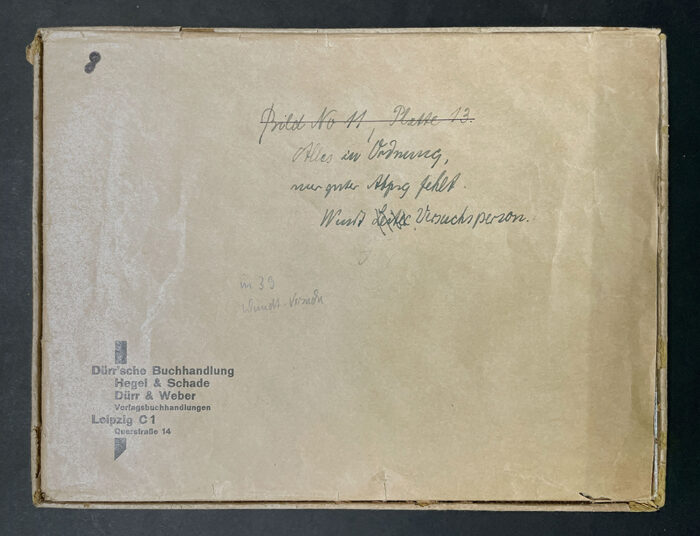 8
Bild No 11, Platte 13.
Alles in Ordnung,
nur guter Abzug fehlt.
Wundt Leiter Versuchsperson.
m 39
Wundt-Versuch
Dürr'sche Buchhandlung
Hegel & Schade
Dürr & Weber
Verlagsbuchhandlungen
Leipzig C 1
Querstraße 14